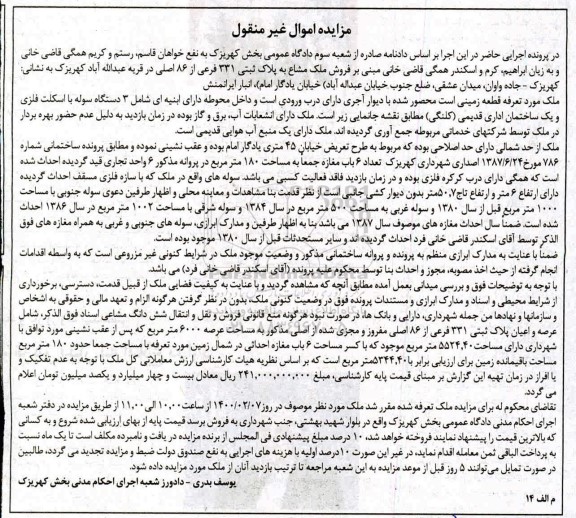 مزایده اموال غیر منقول
در پرونده اجرایی حاضر در این اجرا بر اساس دادنامه صادره از شعبه سوم دادگاه عمومی بخش کهریزک به نفع خواهان قاسم، رستم و کریم همگی قاضی خانی
و به زیان ابراهیم، کرم و اسکندر همگی قاضی خانی مبنی بر فروش ملک مشاع به پلاک ثبتی ۳۳۱ فرعی از ۸۶ اصلی در قریه عبدالله آباد کهریزک به نشانی:
کهریزک - جاده واوان، میدان عشقی، ضلع جنوب خیابان عبداله آباد) خیابان یادگار امام)، انبار ایرانمنش
ملک مورد تعرفه قطعه زمینی است محصور شده با دیوار آجری دارای درب ورودی است و داخل محوطه دارای ابنیه ای شامل ۳ دستگاه سوله با اسکلت فلزی
و یک ساختمان اداری قدیمی (کلنگی) مطابق نقشه جانمایی زیر است. ملک دارای انشعابات آب، برق و گاز بوده در زمان بازدید به دلیل عدم حضور بهره بردار
در ملک توسط شرکتهای خدماتی مربوطه جمع آوری گردیده اند. ملک دارای یک منبع آب هوایی قدیمی است.
ملک از حد شمالی دارای حد اصلاحی بوده که مربوط به طرح تعریض خیابان ۴۵ متری یادگار امام بوده و عقب نشینی نموده و مطابق پروانه ساختمانی شماره
۷۸۶ مورخ ۱۳۸۷/۶/۲۴ اصداری شهرداری کهریزک تعداد ۶ باب مغازه جمعاً به مساحت ۱۸۰ متر مربع در پروانه مذکور ۶ واحد تجاری قید گردیده احداث شده
است که همگی دارای درب کرکره فلزی بوده و در زمان بازدید فاقد فعالیت کسبی می باشد. سوله های واقع در ملک که با سازه فلزی مسقف احداث گردیده
دارای ارتفاع ۶ متر و ارتفاع تاج ۵۰.۷ متر بدون دیوار کشی جانبی است از نظر قدمت بنا مشاهدات و معاینه محلی و اظهار طرفین دعوی سوله جنوبی با مساحت
۱۰۰۰ متر مربع قبل از سال ۱۳۸۰ و سوله غربی به مساحت ۵۰۰ متر مربع در سال ۱۳۸۴ و سوله شرقی با مساحت ۱۰۰۲ متر مربع در سال ۱۳۸۶ احداث
شده است. ضمناً سال احداث مغازه های موصوف سال ۱۳۸۷ می باشد. بنا به اظهار طرفین و مدارک ابرازی، سوله های جنوبی و غربی به همراه مغازه های فوق
الذکر توسط آقای اسکندر قاضی خانی فرد احداث گردیده اند و سایر مستحدثات قبل از سال ۱۳۸۰ موجود بوده است.
ضمناً با عنایت به مدارک ابرازی منظم به پرونده و پروانه ساختمانی مذکور و وضعیت موجود ملک در شرایط کنونی غیر مزروعی است که به واسطه اقدامات
انجام گرفته از حیث اخذ مصوبه، مجوز و احداث بنا توسط محکوم علیه پرونده (آقای اسکندر قاضی خانی فرد) می باشد.
با توجه به توضیحات فوق و بررسی میدانی بعمل آمده مطابق آنچه که مشاهده گردید و با عنایت به کیفیت فضایی ملک از قبیل قدمت، دسترسی، برخورداری
از شرایط محیطی و اسناد و مدارک ابرازی و مستندات پرونده فوق در وضعیت کنونی ملک، بدون در نظر گرفتن هرگونه الزام و تعهد مالی و حقوقی به اشخاص
و سازمانها و نهادها من جمله شهرداری، دارایی و بانک ها، در صورت نبود هرگونه منع قانونی فروش و نقل و انتقال شش دانگ مشاعی اسناد فوق الذکر، شامل
عرصه و اعیان پلاک ثبتی ۳۳۱ فرعی از ۸۶ اصلی مفروز و مجزی شده از اصلی مذکور به مساحت عرصه ۶۰۰۰ متر مربع که پس از عقب نشینی مورد توافق با
شهرداری دارای مساحت ۵۵۲۴.۴۰ متر مربع موجود که با کسر مساحت ۶ باب مغازه احداثی در شمال زمین مورد تعرفه با مساحت جمعا حدود ۱۸۰ متر مربع
مساحت باقیمانده زمین برای ارزیابی برابر با ۵۳۴۴.۴۰ متر مربع است که بر اساس نظریه هیات کارشناسی ارزش معاملاتی کل ملک با توجه به عدم تفکیک و
یا افراز در زمان تهیه این گزارش بر مبنای قیمت پایه کارشناسی، مبلغ ۲۴۱,۰۰۰,۰۰۰,۰۰۰ ریال معادل بیست و چهار میلیارد و یکصد میلیون تومان اعلام
می گردد.
تقاضای محکوم له برای مزایده ملک تعرفه شده مقرر شد ملک مورد نظر موصوف در روز ۱۴۰۰/۰۲/۰۷ از ساعت ۱۰,۰۰ الی ۱۱,۰۰ از طریق مزایده در دفتر شعبه
اجرای احکام مدنی دادگاه عمومی بخش کهریزک واقع در بلوار شهید بهشتی، جنب شهرداری به فروش برسد قیمت پایه از بهای ارزیابی شده شروع و به کسانی
که بالاترین قیمت را پیشنهاد نمایند فروخته خواهد شد، ۱۰ درصد مبلغ پیشنهادی فی المجلس از برنده مزایده در یافت و نامبرده مکلف است تا یک ماه نسبت
به پرداخت الباقی ثمن معامله اقدام نماید، در غیر این صورت ۱۰ درصد اولیه با هزینه های اجرایی به نفع صندوق دولت ضبط و مزایده تجدید می گردد، طالبین
در صورت تمایل می‌توانند ۵ روز قبل از موعد مزایده به این شعبه مراجعه تا ترتیب بازدید آنان از ملک مورد مزایده داده شود.
یوسف بدری - دادورز شعبه اجرای احکام مدنی بخش کهریزک
م الف ۱۴